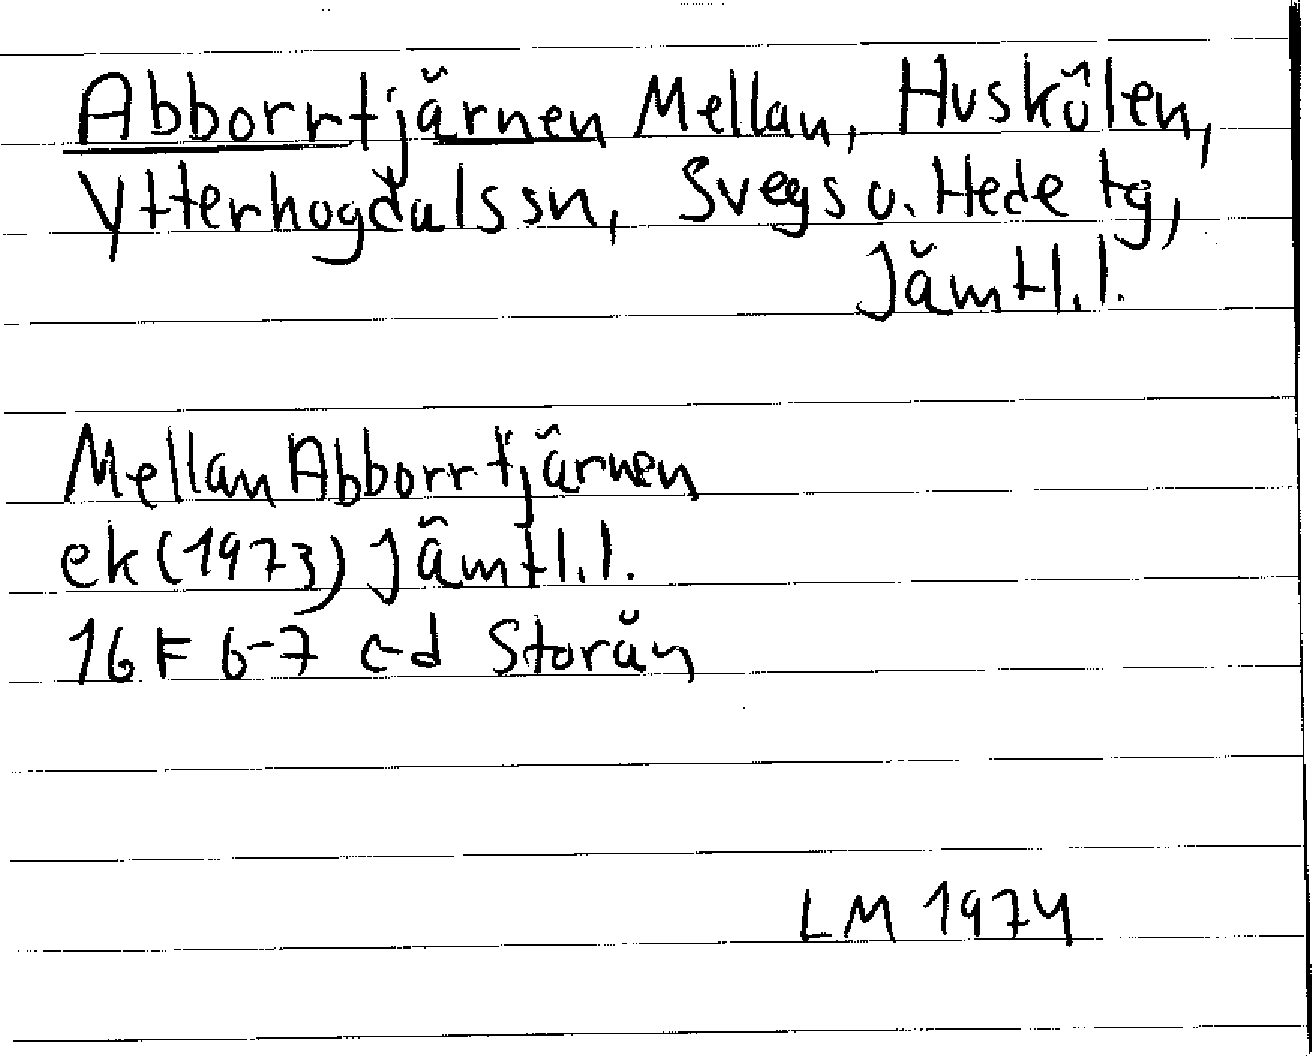 Abborrtjärnen Mellan, Huskölen,
Ytterhogdals sn, Svegs o. Hede tg,
Jämtl. l.
Mellan Abborrtjärnen
ek (1973) Jämtl. l.
16 F 6-7 c-d Storån
LM 1974